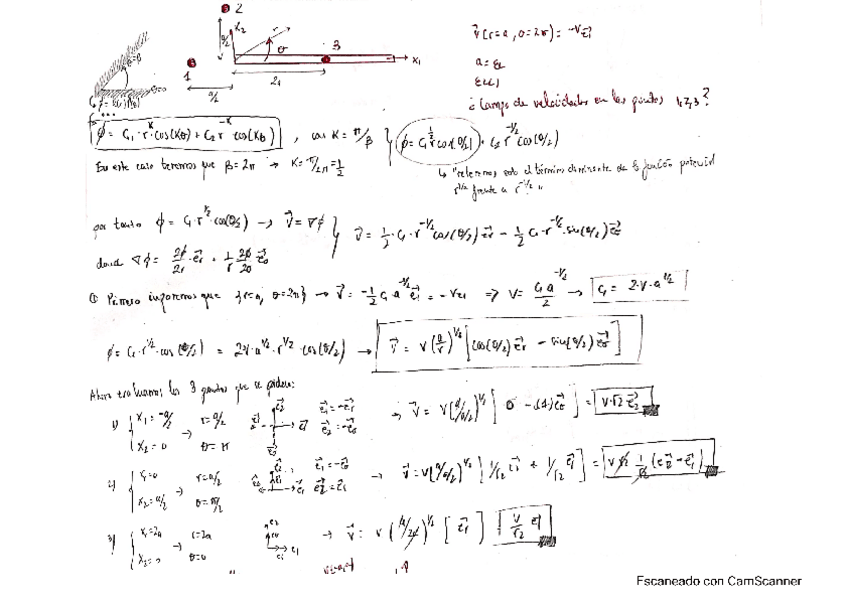 2
x₂
a/2
r
θ
3
x₁
1
a/2
2a
θ=0
v⃗(r=a, θ=2π) = -V e⃗₁
a =
¿Campo de velocidades en los puntos 1,2,3?
φ = C₁·r^K·cos(Kθ) + C₂ r^-K cos(Kθ) , con K = π/β } φ = C₁ r^1/2 cos(θ/2) + C₂ r^-1/2 cos(θ/2)
En este caso tenemos que β = 2π → K = π/2π = 1/2
↳ "retenemos solo el término dominante de la función potencial
r^1/2 frente a r^-1/2."
por tanto φ = C₁·r^1/2·cos(θ/2) → v⃗ = ∇φ } v⃗ = 1/2·C₁·r^-1/2 cos(θ/2) e⃗r - 1/2 C₁·r^-1/2·sin(θ/2) e⃗θ
donde ∇φ = ∂φ/∂r·e⃗r + 1/r ∂φ/∂θ·e⃗θ
Primero imponemos que {r=a, θ=2π} → v⃗ = -1/2 C₁ a^-1/2 e⃗₁ = -V e₁ ⇒ V = C₁ a^-1/2 / 2 → C₁ = 2·V·a^1/2
φ = C₁·r^1/2·cos(θ/2) = 2V·a^1/2·r^1/2·cos(θ/2) → v⃗ = V(a/r)^1/2 [cos(θ/2) e⃗r - sin(θ/2) e⃗θ]
Ahora evaluamos los 3 puntos que se piden:
1) { x₁ = -a/2 x₂ = 0 → r = a/2 θ = π e⃗₁ = -e⃗r e⃗₂ = -e⃗θ → v⃗ = V(a/a/2)^1/2 [0 - (1) e⃗θ] = V·√2 e⃗₂
2) { x₁ = 0 x₂ = a/2 → r = a/2 θ = π/2 e⃗₁ = -e⃗θ e⃗₂ = e⃗r → v⃗ = V(a/a/2)^1/2 [1/√2 e⃗₂ + 1/√2 e⃗₁] = V √2 1/√2 (e⃗₂ - e⃗₁)
3) { x₁ = 2a x₂ = 0 → r = 2a θ = 0 → v⃗ = V(a/2a)^1/2 [e⃗₁] V/√2 e⃗₁
Escaneado con CamScanner